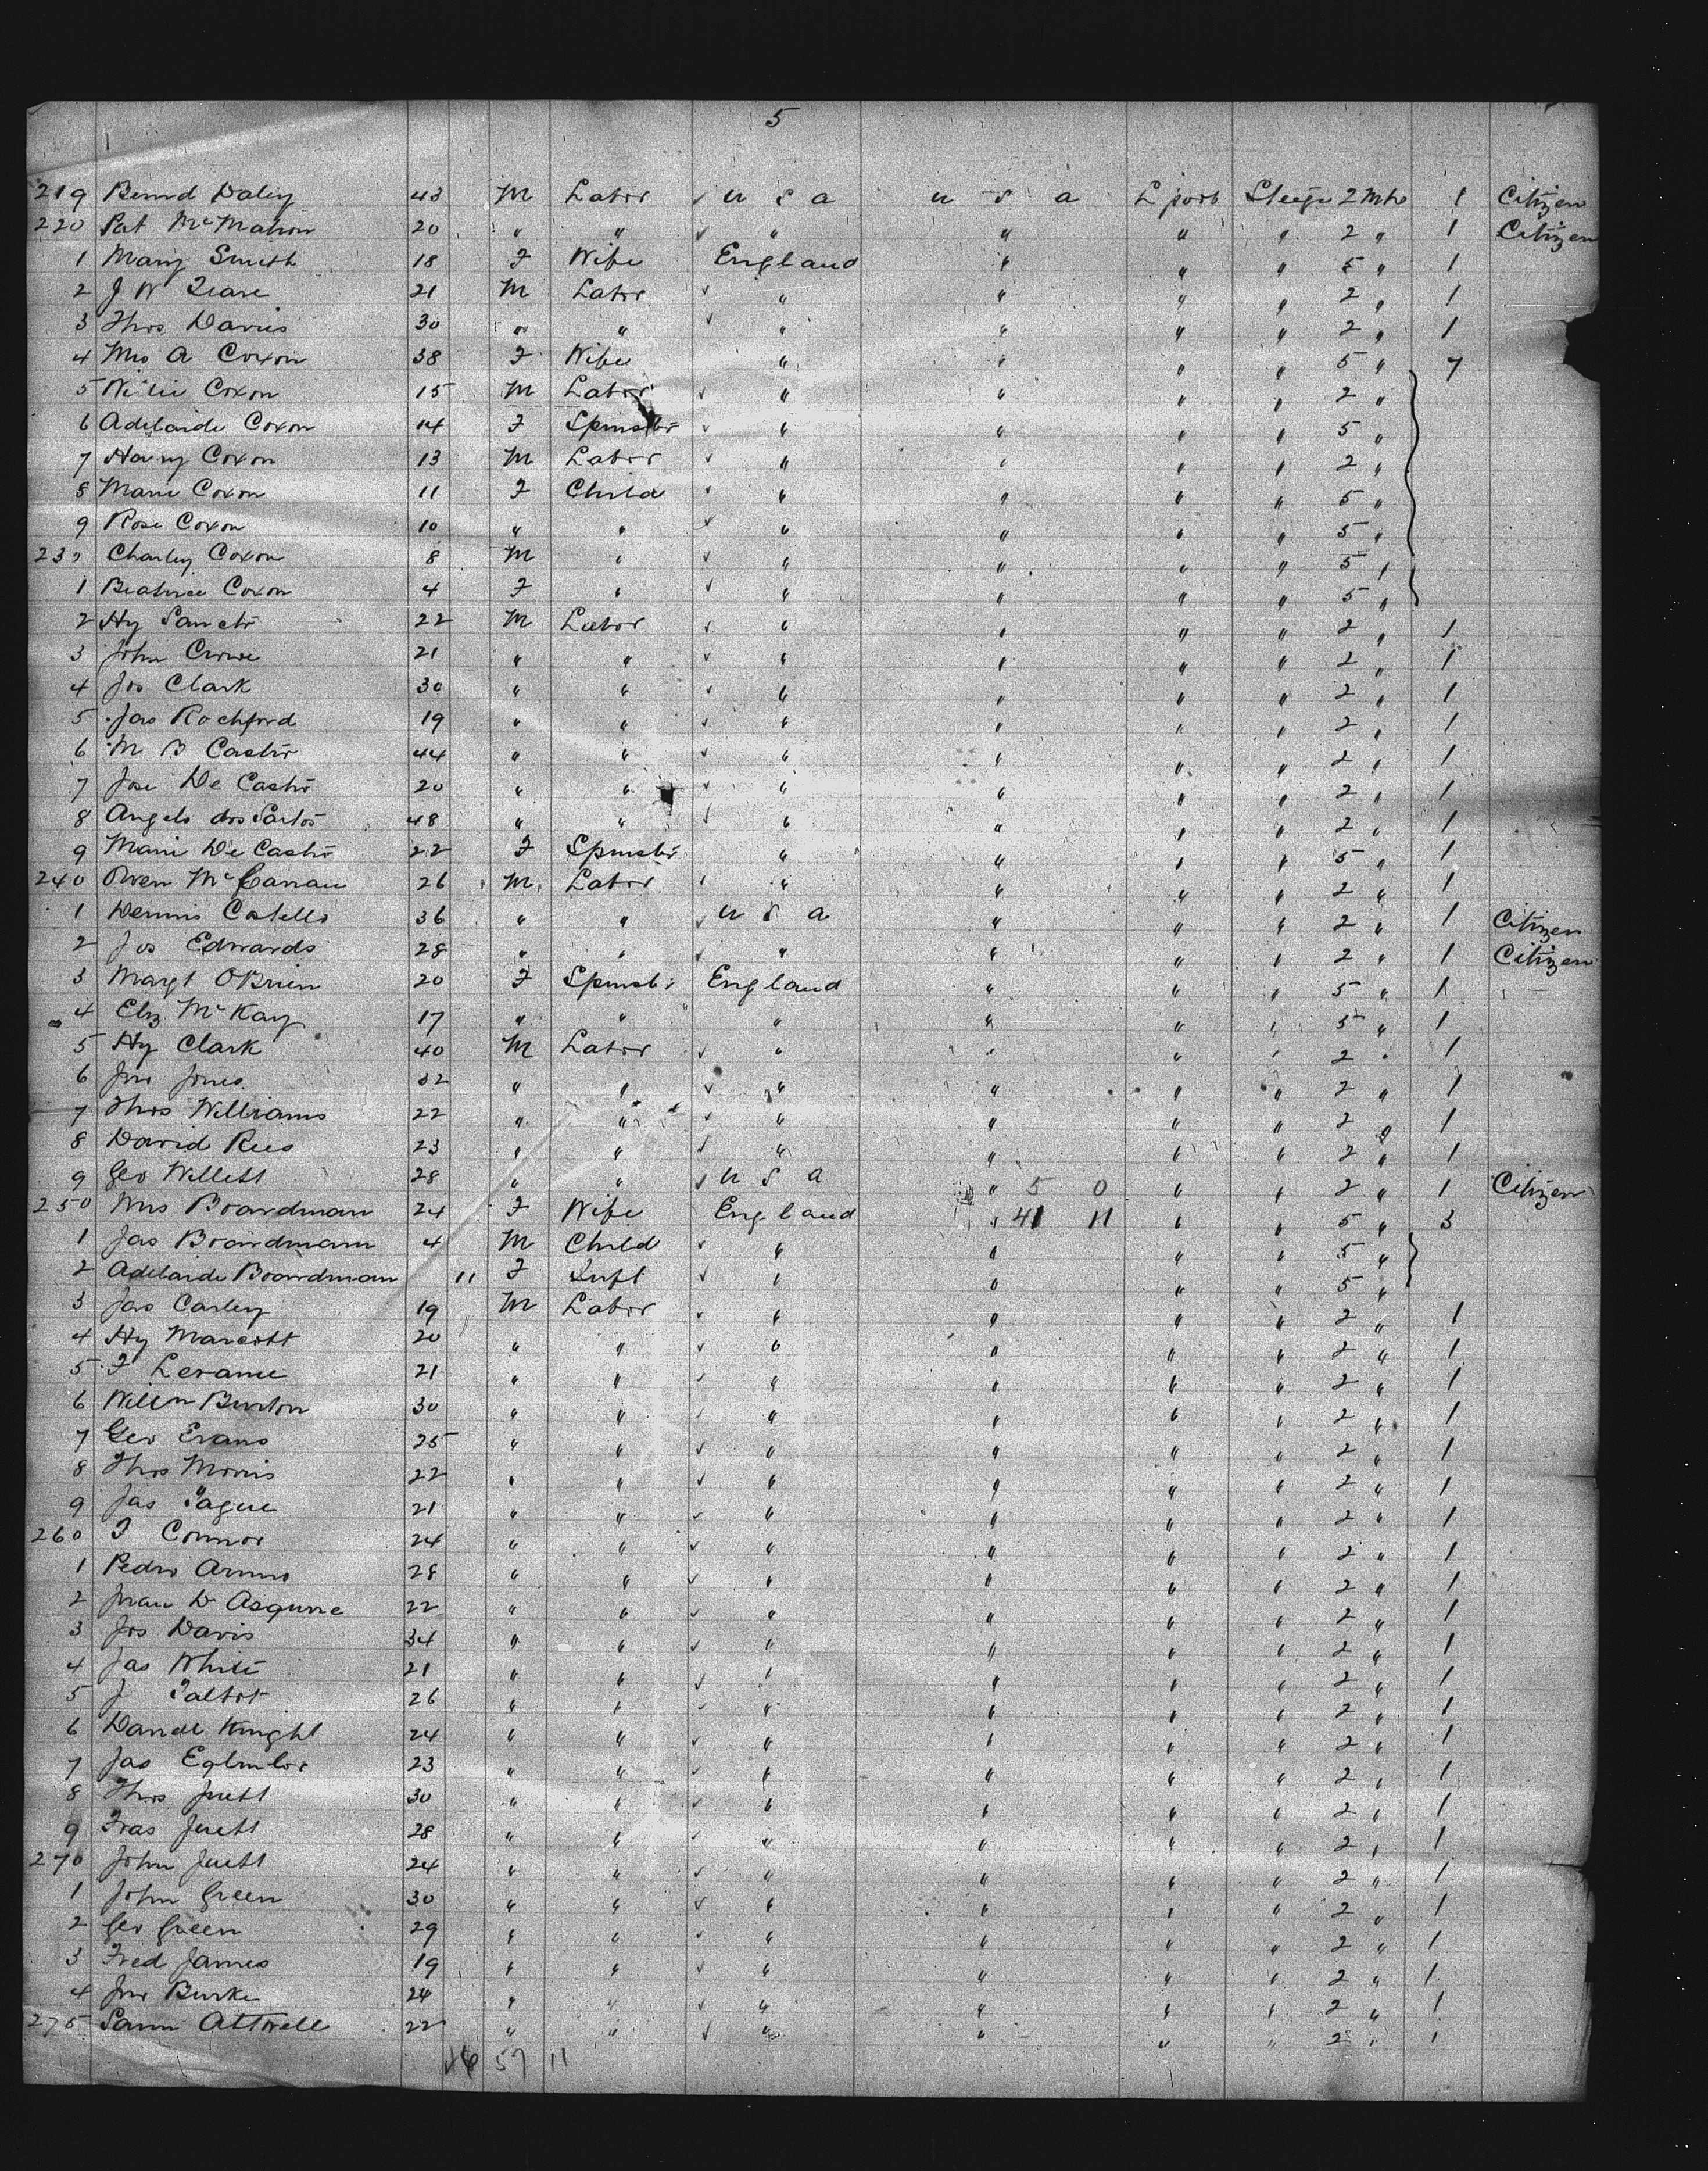 5
219 Bernd Daley 43 M Labor ✓ U S A U S A L pool Steege 2 Mho 1 Citizen
220 Pat McMahon 20 " " ✓ " " " " 2 " 1 Citizen
1 Mary Smith 18 F Wife England " " " 5 " 1
2 J W 21 M Labor ✓ " " " " 2 " 1
3 Thos Davies 30 " " ✓ " " " " 2 " 1
4 Mrs A Coxon 38 F Wife " " " " 5 " 7
5 Willie Coxon 15 M Labor ✓ " " " " 2 "
6 Adelaide Coxon 14 F Spinster ✓ " " " " 5 "
7 Harry Coxon 13 M Labor ✓ " " " " 2 "
8 Marie Coxon 11 F Child ✓ " " " " 5 "
9 Rose Coxon 10 " " ✓ " " " " 5 "
230 Charley Coxon 8 M " ✓ " " " " 5 "
1 Beatrice Coxon 4 F " ✓ " " " " 5 "
2 Hy 22 M Labor ✓ " " " " 2 " 1
3 John Crowe 21 " " ✓ " " " " 2 " 1
4 Jos Clark 30 " " ✓ " " " " 2 " 1
5 Jas Rochford 19 " " ✓ " " " " 2 " 1
6 M B Castro 44 " " ✓ " " " " 2 " 1
7 Jose De Castro 20 " " ✓ " " " " 2 " 1
8 Angelo dos Santos 48 " " ✓ " " " " 2 " 1
9 Marie De Castro 22 F Spinster " " " " 5 " 1
240 Owen 26 M Labor ✓ " " " " 2 " 1
1 Dennis Costello 36 " " ✓ U S A " " " 2 " 1 Citizen
2 Jos Edwards 28 " " ✓ " " " " 2 " 1 Citizen
3 Margt OBrien 20 F Spinstr England " " " 5 " 1
4 Eliz McKay 17 " " " " " " 5 " 1
5 Hy Clark 40 M Labor ✓ " " " " 2 " 1
6 Jno Jones 32 " " ✓ " " " " 2 " 1
7 Thos Williams 22 " " ✓ " " " " 2 " 1
8 David Rees 23 " " ✓ " " " " 2 " 1
9 Geo Willett 28 " " ✓ U S A " 5 0 " " 2 " 1 Citizen
250 Mrs Boardman 24 F Wife England " 41 11 " " 5 " 3
1 Jas Boardmann 4 M Child ✓ " " " " 5 "
2 Adelaide Boardman 11 F Inft ✓ " " " " 5 "
3 Jas Carley 19 M Labor ✓ " " " " 2 " 1
4 Hy Marcott 20 " " ✓ " " " " 2 " 1
5 F 21 " " ✓ " " " " 2 " 1
6 Willm Burton 30 " " ✓ " " " " 2 " 1
7 Geo Evans 25 " " ✓ " " " " 2 " 1
8 Thos Morris 22 " " ✓ " " " " 2 " 1
9 Jas Tague 21 " " ✓ " " " " 2 " 1
260 T Connor 24 " " ✓ " " " " 2 " 1
1 Pedro 28 " " ✓ " " " " 2 " 1
2 Juan D 22 " " ✓ " " " " 2 " 1
3 Jos Davis 34 " " ✓ " " " " 2 " 1
4 Jas White 21 " " ✓ " " " " 2 " 1
5 J Talbot 26 " " ✓ " " " " 2 " 1
6 Daniel Knight 24 " " ✓ " " " " 2 " 1
7 Jas 23 " " ✓ " " " " 2 " 1
8 Thos Juett 30 " " ✓ " " " " 2 " 1
9 Fras Juett 28 " " ✓ " " " " 2 " 1
270 John Juett 24 " " ✓ " " " " 2 " 1
1 John Green 30 " " ✓ " " " " 2 " 1
2 Geo Green 29 " " ✓ " " " " 2 " 1
3 Fred James 19 " " ✓ " " " " 2 " 1
4 Jno Burke 24 " " ✓ " " " " 2 " 1
275 Saml Attwell 22 " " ✓ " " " " 2 " 1
57 11